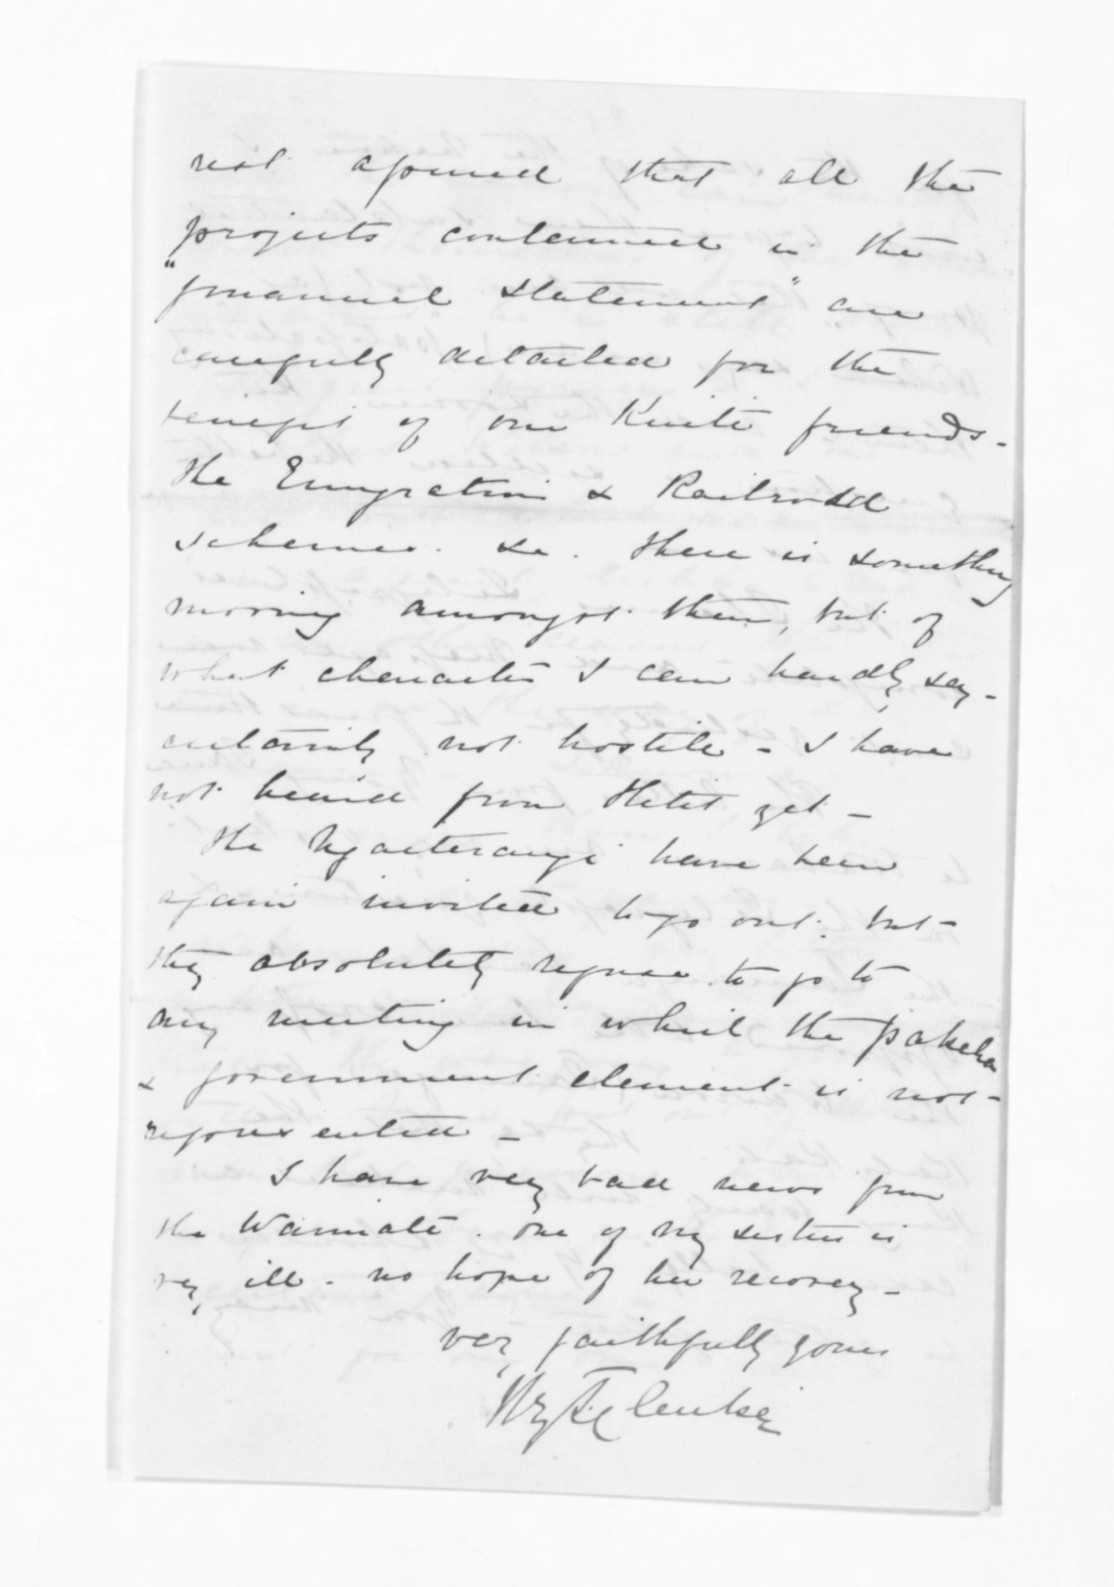 not assured that all the
projects contained in the
"financial statement" are
carefully detailed for the
benefit of our Kuiti friends -
the Emigration & Railroad
schemes. &c. there is something
moving amongst them, but of
what character I can hardly say -
certainly not hostile - I have
not heard from Hetit yet -
The Ngaiterangi have been
again invited to go out, but -
they absolutely refuse to go to
any meeting in which the pakeha
& government element is not -
represented -
I have very bad news from
the Waimate. One of my sisters is
very ill - no hope of her recovery -
very faithfully yours
Hy T. Clarke